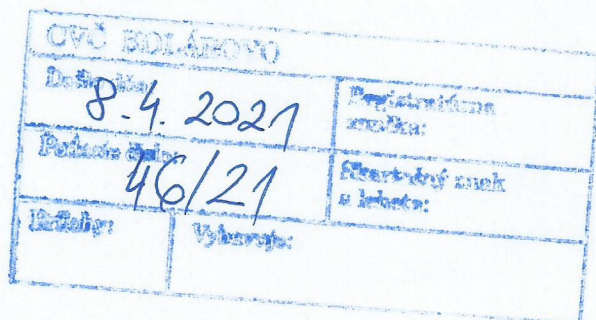 CVČ KOLÁROVO
Došlo dňa:
8.4. 2021
Registratúrna
značka:
Podacie číslo:
46/21
Skartačný znak
a lehota:
Prílohy:
Vybavuje: